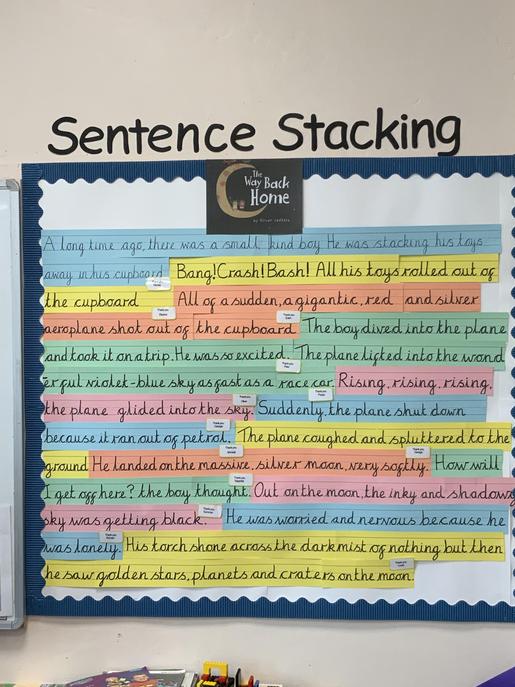 Sentence Stacking
The
Way Back
Home
by Oliver Jeffers
A long time ago, there was a small, kind boy He was stacking his toys
away in his cupboard Bang! Crash! Bash! All his toys rolled out of
the cupboard All of a sudden, a gigantic, red and silver
aeroplane shot out of the cupboard. The boy dived into the plane
and took it on a trip. He was so excited. The plane lifted into the wond
erful violet-blue sky as fast as a race car. Rising, rising, rising,
the plane glided into the sky. Suddenly, the plane shut down
because it ran out of petrol. The plane coughed and spluttered to the
ground He landed on the massive, silver moon, very softly. How will
I get off here? the boy thought. Out on the moon, the inky and shadowy
sky was getting black. He was worried and nervous because he
was lonely. His torch shone across the dark mist of nothing but then
he saw golden stars, planets and craters on the moon.